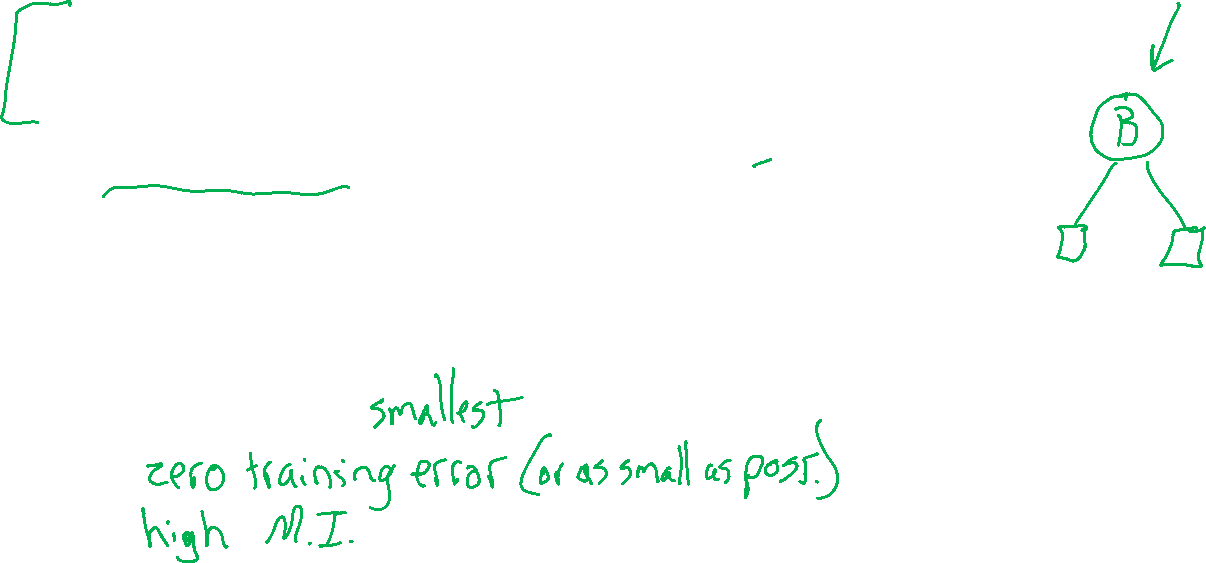 B
smallest
zero training error (or as small as poss.)
high M.I.